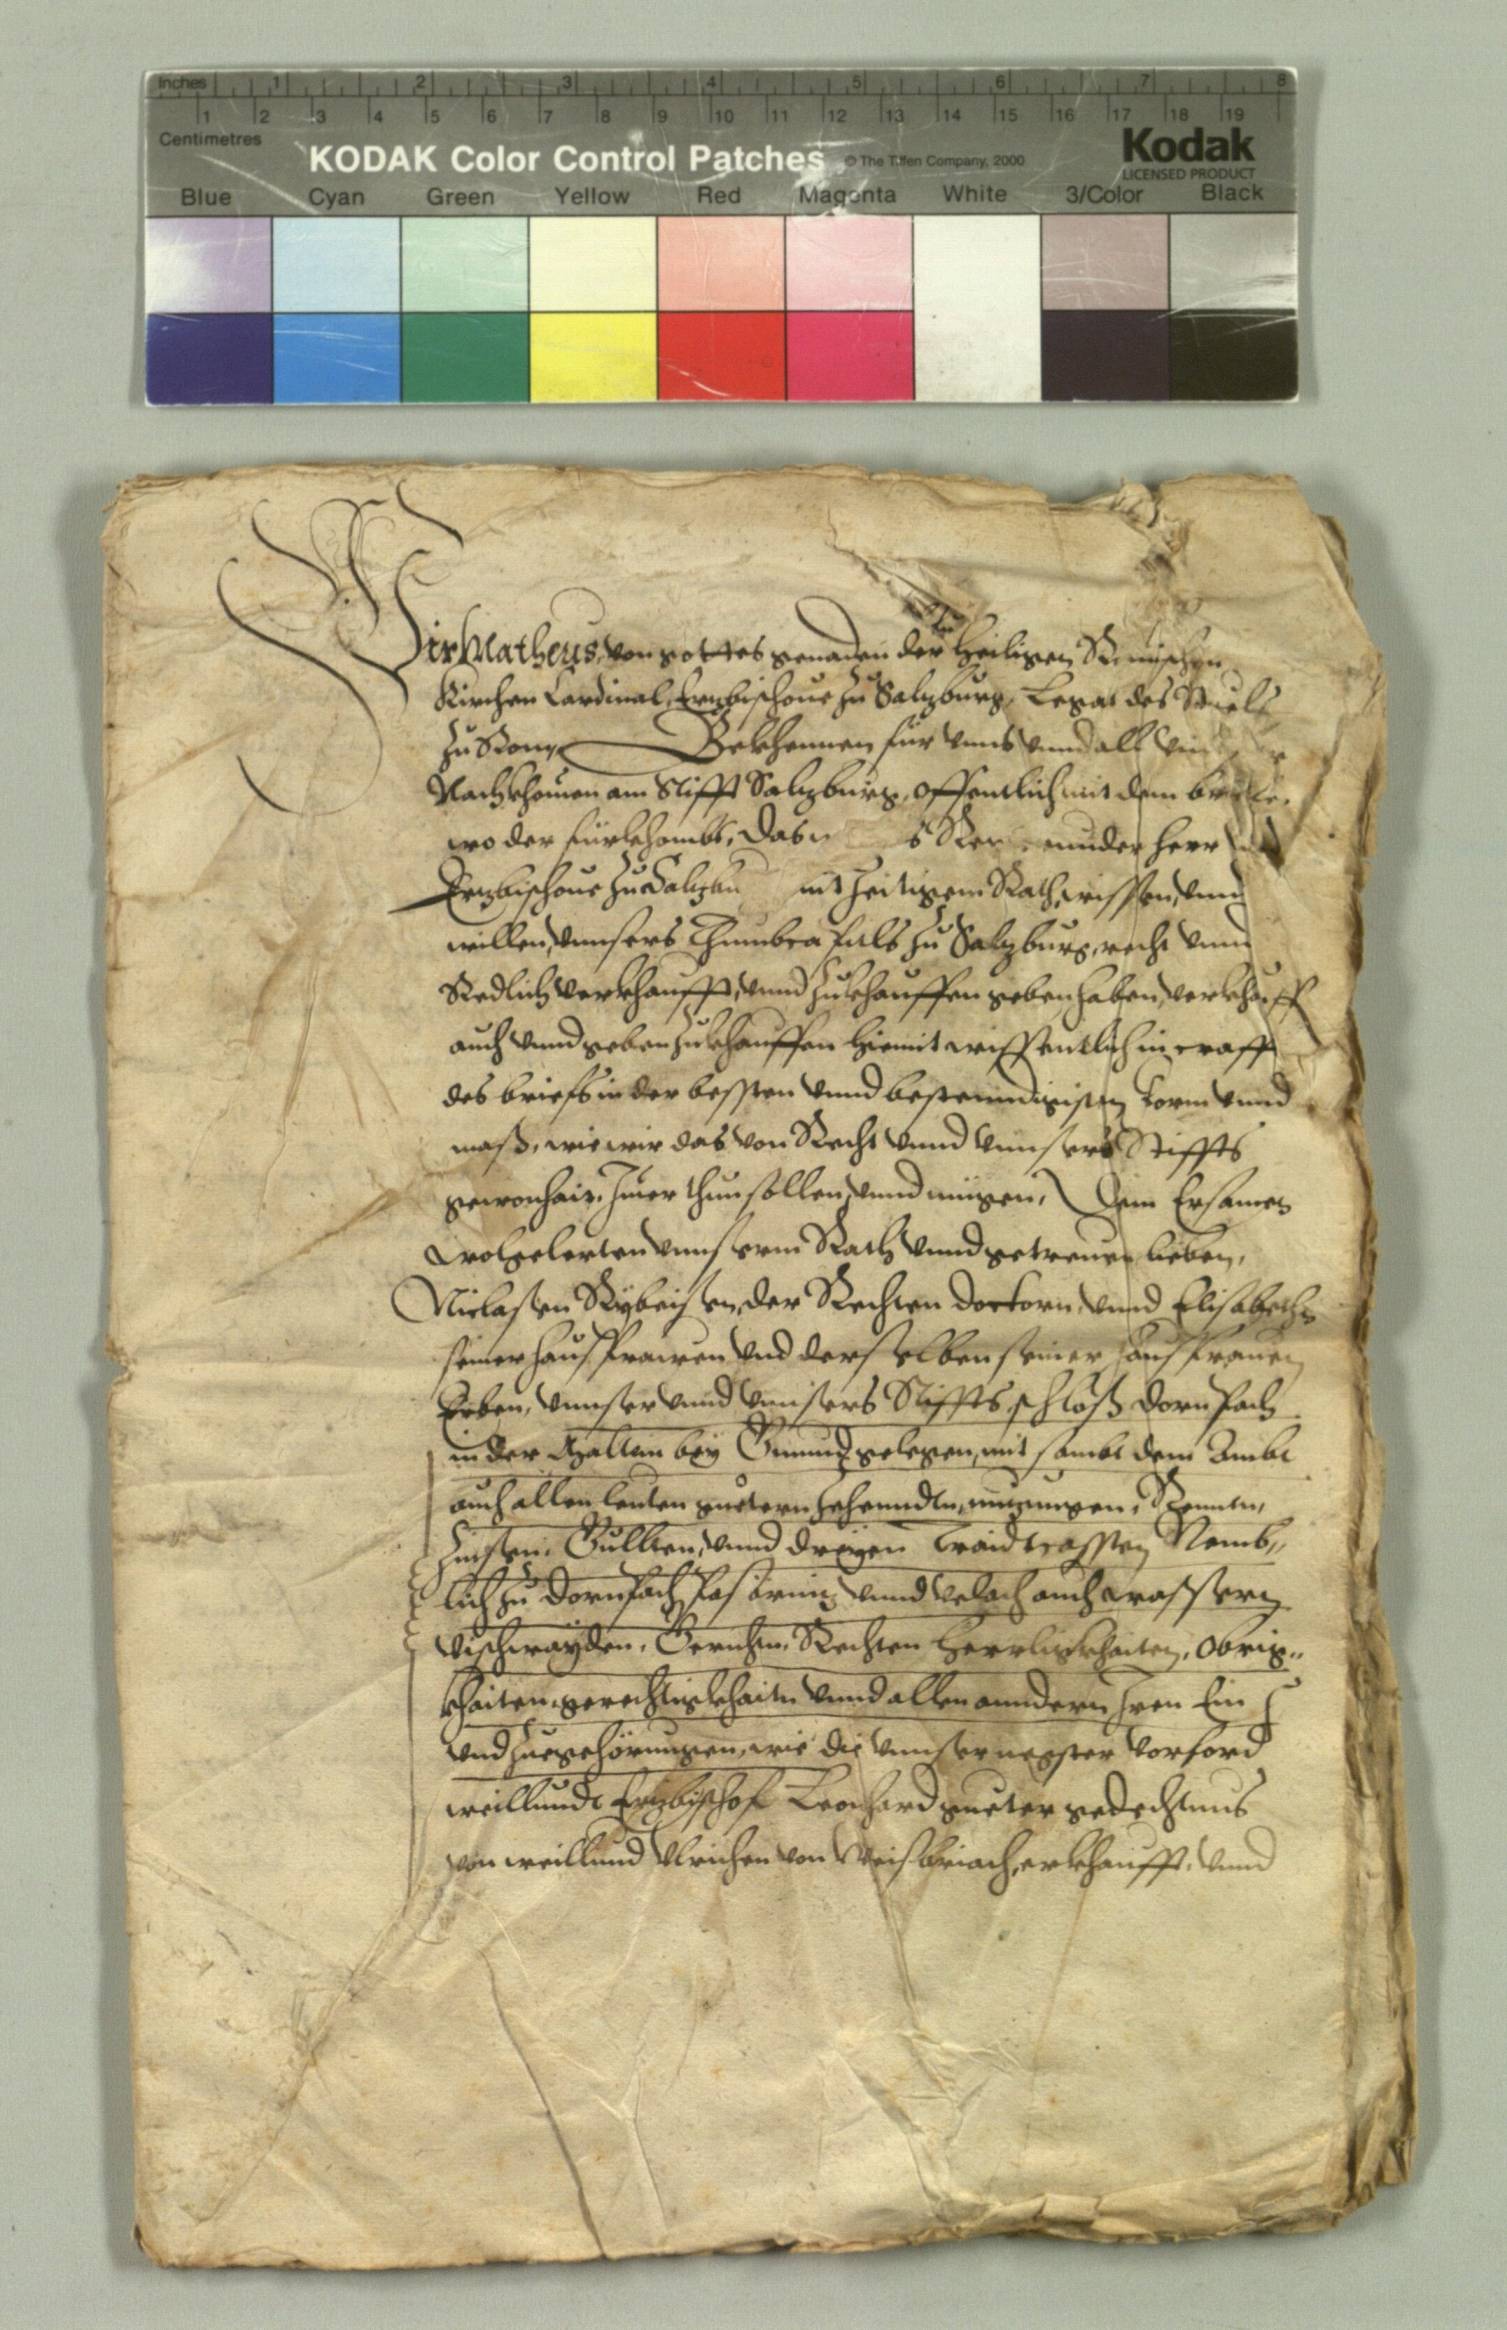 Inches 1 2 3 4 5 6 7 8
1 2 3 4 5 6 7 8 9 10 11 12 13 14 15 16 17 18 19
Centimetres
KODAK Color Control Patches © The Tiffen Company, 2000 Kodak
LICENSED PRODUCT
Blue Cyan Green Yellow Red Magenta White 3/Color Black
Wir Matheus, von gottes genaden der Heiligen Römischen
Kirchen Cardinal, Ertzbischoue zu Salzburg, Legat des Stuels
zu Rom, Bekhennen für vnns vnnd all
Nachkhomen am Stifft Salzburg, offentlich mit dem brieue,
wo der fürkhombt, Das herr
Ertzbischoue zu Salzbu mit zeitigem Rath, wissen, vnnd
willen, vnnsers Thumbcapitls zu Salzburg, recht vnnd
Redlich verkhaufft, vnnd zukhauffen geben haben, verkhauff
auch vnnd geben zukhauffen hiemit wissentlich in crafft
des briefs in der bessten vnnd bestenndigisten form vnnd
maß, wie wir das von Recht vnnd vnnsers Stiffts
gewonhait, thun sollen, vnnd mügen, Dem Ersamen
wolgelerten vnnserm Rath vnnd getreuen lieben,
Niclasen Rybeisen, der Rechten doctorn, vnnd Elisabethn
seiner hausfrawen vnd derselben seiner hausfrauen
Erben, vnnser vnnd vnnsers Stiffts schloß dornpach
in der Maltein bey Gmundt gelegen, mit sambt dem Ambt
auch allen leuten guetern zehenndtn, nuzungen, Rennten,
Zinsen, Gullten, vnnd dreyen traidcassten Nemb„
lich zu dornpach, vnnd velach auch wassern
vischwayden, Gerichtn, Rechten Herrligkhaiten, Obrig„
khaiten, gerechtigkhaitn vnnd allen anndern Iren Ein
vnd zuegehörungen, wie die vnnser negster vorford
weillundt Ertzbischof Leonhard gueter gedechtnus
von weillund Vlrichen von Weisbriach, erkhaufft, vnnd